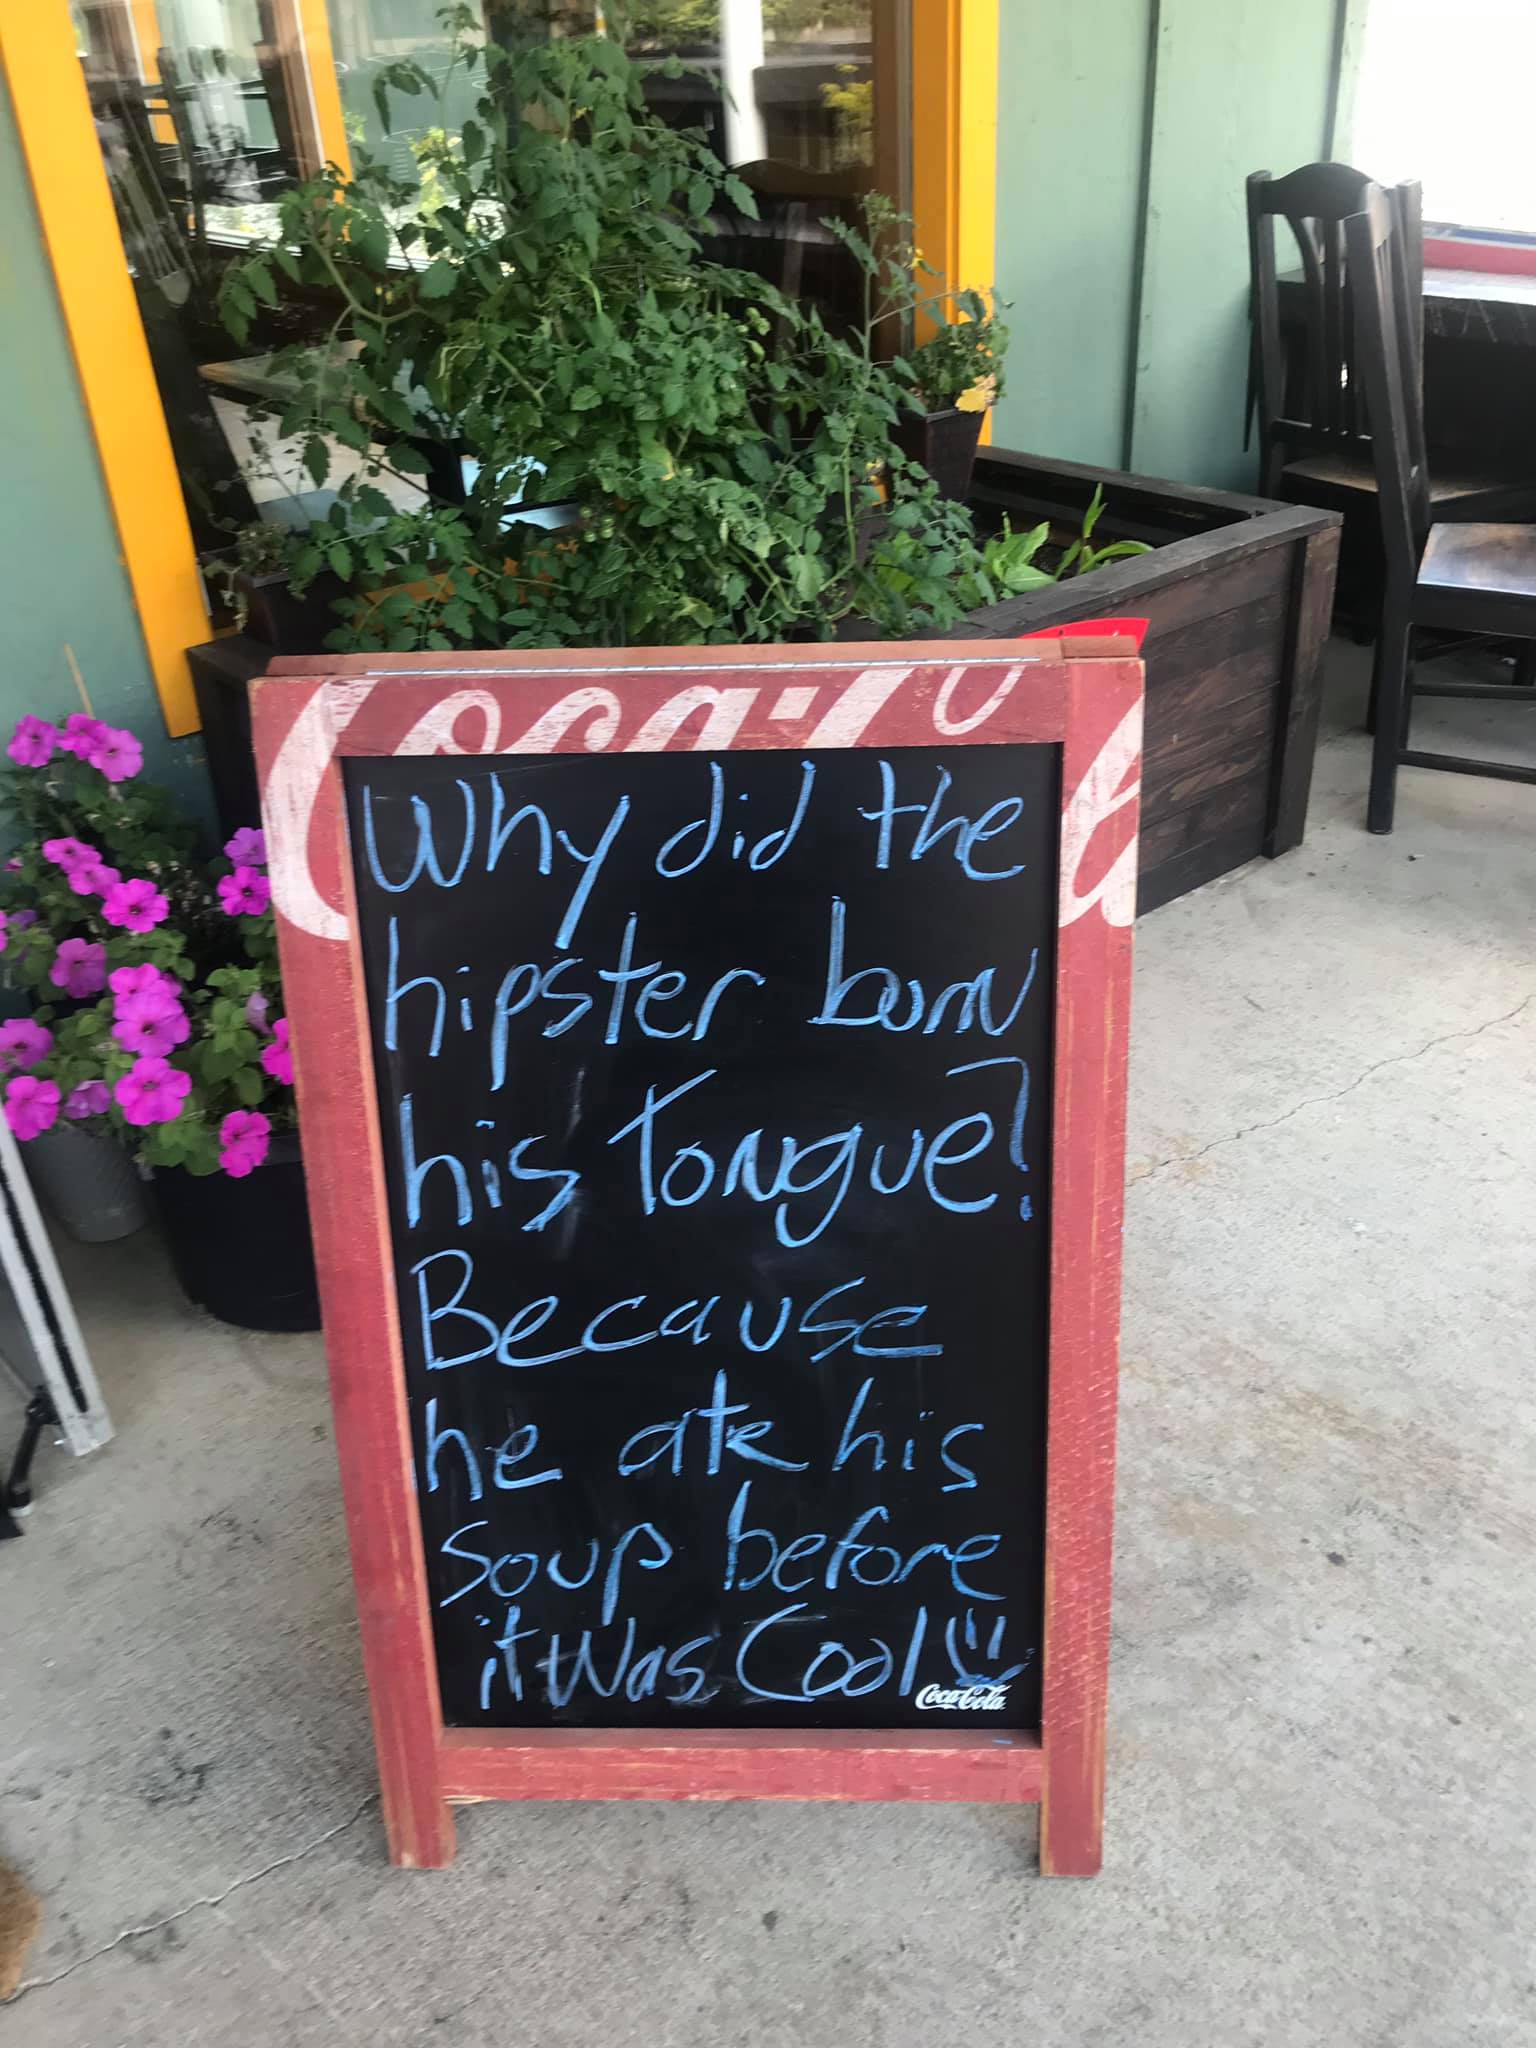 Coca-Cola
Why did the
hipster burn
his tongue?
Because
he ate his
soup before
it was Cool
Coca-Cola